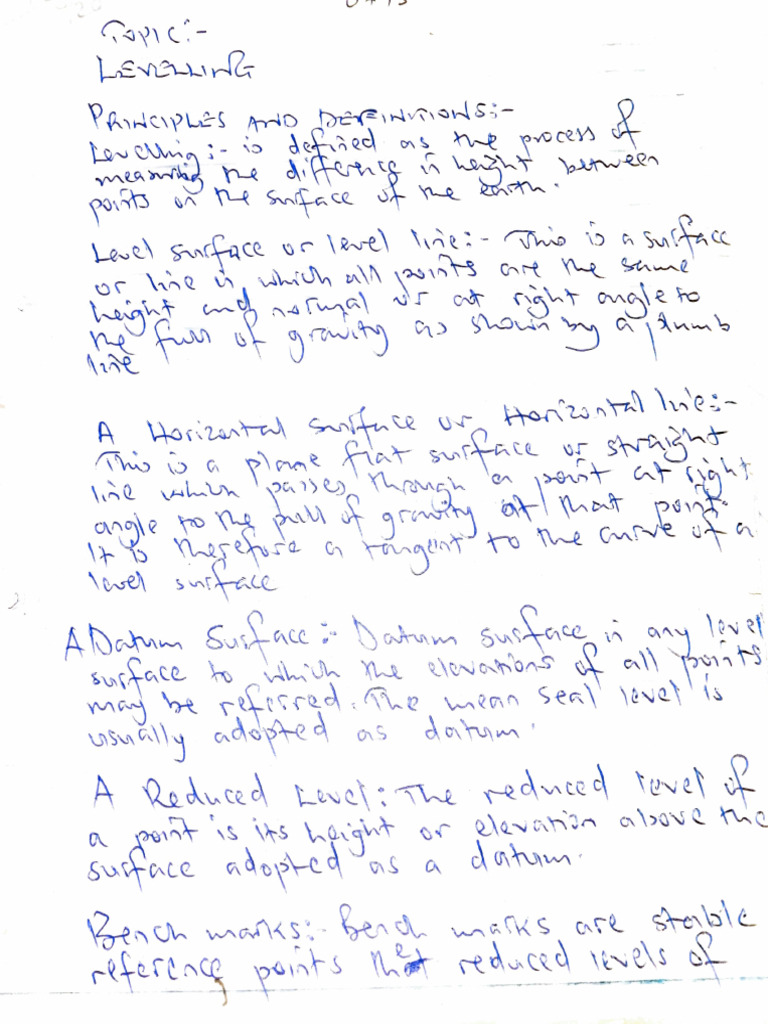 Topic:-
LEVELLING
PRINCIPLES AND DEFINITIONS:-
Levelling:- is defined as the process of
measuring the difference in height between
points on the surface of the earth.
Level surface or level line:- This is a surface
or line in which all points are the same
height and normal or at right angle to
the of gravity as shown by a plumb
line
A Horizontal surface or Horizontal line:-
This is a plane flat surface or straight
line which passes through a point at right
angle to the pull of gravity at that point.
It is therefore a tangent to the curve of a
level surface
A Datum Surface:- Datum surface is any level
surface to which the elevations of all points
may be referred. The mean seal level is
usually adopted as datum.
A Reduced Level: The reduced level of
a point is its height or elevation above the
surface adopted as a datum.
Bench marks:- Bench marks are stable
reference points reduced levels of